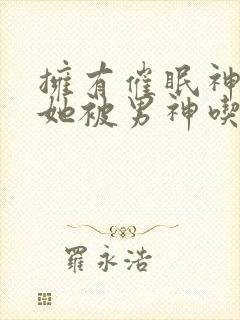 擁有催眠神
她被男神喫
羅永浩